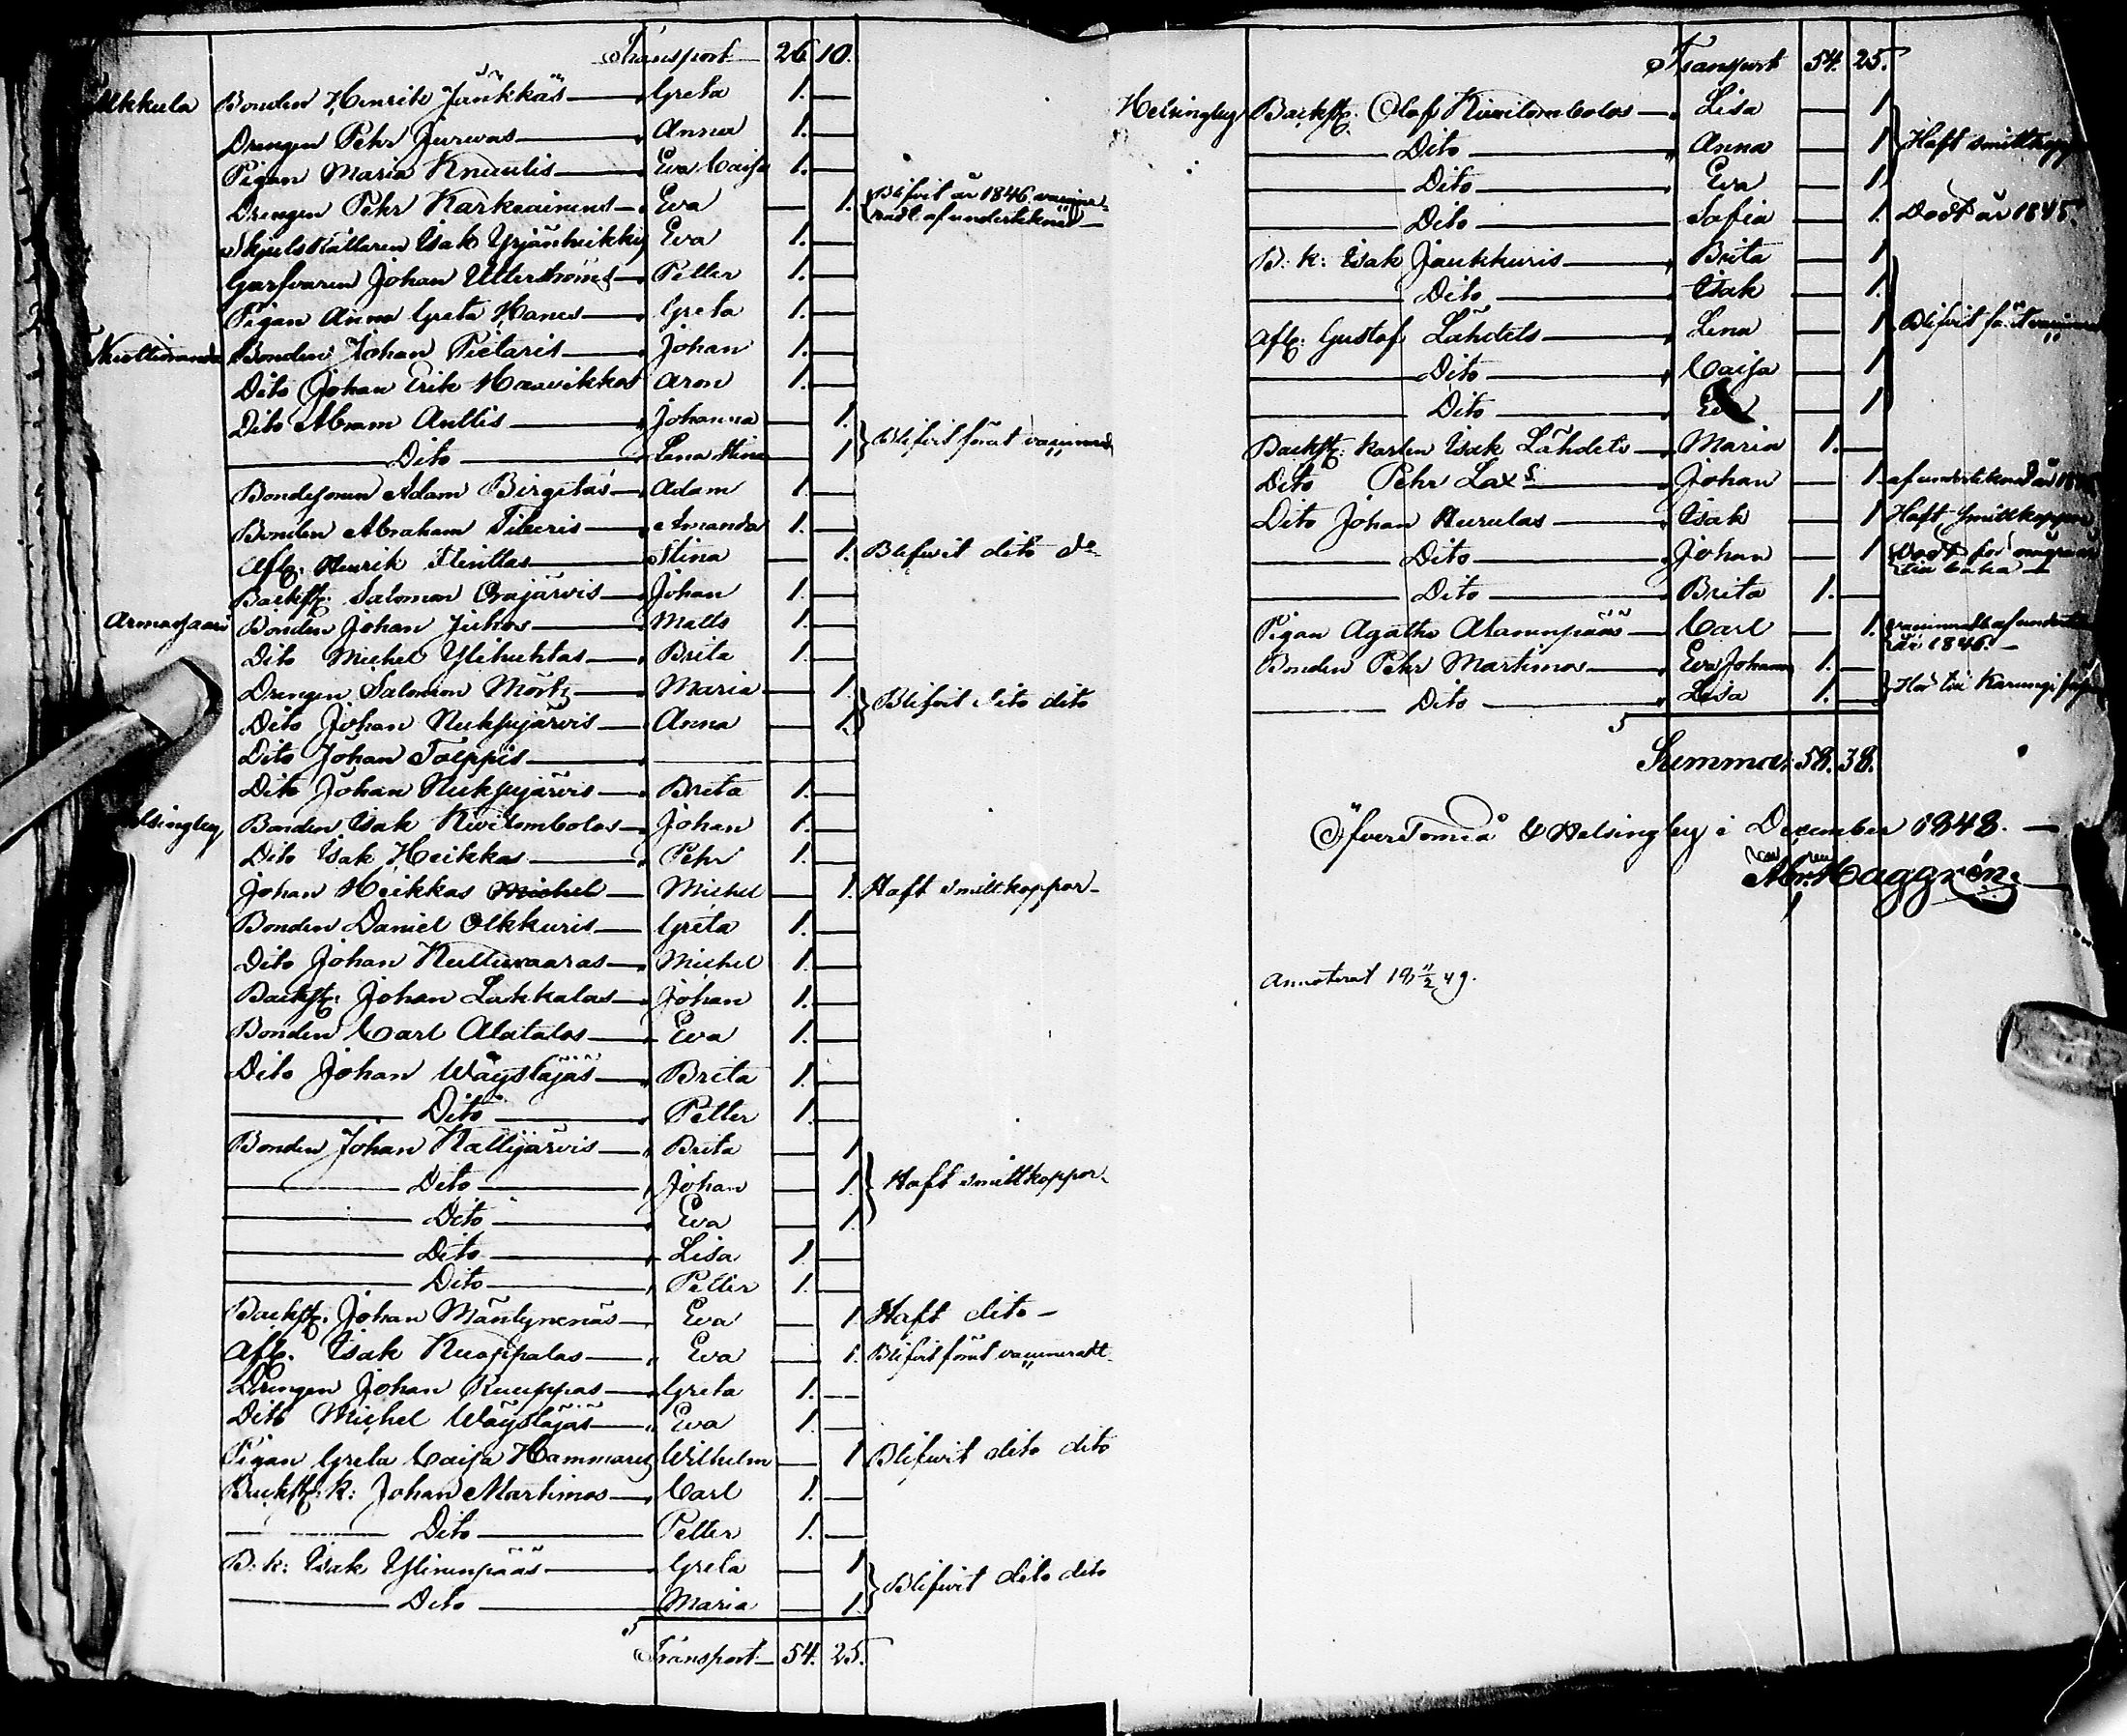 Transport 26 10.
Ukkula Bonden Henrik Jänkkäs Greta 1.
Drengen Pehr Jurwas Anna 1.
Pigan Maria Knuutis Eva Caijsa 1.
Drengen Pehr Karkiainens Eva 1. Blifvit år 1846 vaccine-
radt af underteknad
Skjutskättaren Isak Yrjänheikkis Eva 1.
Garfvaren Johan Ullerströms Petter 1.
Pigan Anna Greta Hanes Greta 1.
Bonden Johan Pietaris Johan 1.
Dito Johan Erik Haavikkos Aron 1.
Dito Abram Anttis Johanna 1.
Dito Lena Stina 1 Blifvit förut vaccinerad
Bondesonen Adam Birgitas Adam 1.
Bonden Abraham Tiburis Amanda 1.
Afls: Henrik Flinttas Stina 1. Blefwit dito do
Backst: Salomon Orajärvis Johan 1.
Armasjaari Bonden Johan Juhos Matts 1.
Dito Michel Ylihuhtas Brita 1.
Drengen Salomon Mörts Maria 1.
Dito Johan Reikujärvis Anna 1. Blifvit dito dito
Dito Johan Tolppis
Dito Johan Reikujärvis Brita 1.
Helsingby Bonden Isak Kivilombolos Johan 1.
Dito Isak Heikka Pehr 1.
Johan Heikkas Michel Michel 1. Haft smittkoppor
Bonden Daniel Olkkuris Greta 1.
Dito Johan Kultuvaaras Michel 1.
Backst: Johan Lakkalas Johan 1.
Bonden Carl Alatalos Eva 1.
Dito Johan Wäystäjäs Brita 1.
Dito Petter 1.
Bonden Johan Kallijärvis Brita 1
Dito Johan 1. Haft smittkoppor
Dito Eva 1.
Dito Lisa 1.
Dito Petter 1.
Backst: Johan Mäntynenäs Eva 1 Haft dito
Afls. Isak Kuoppalas Eva 1. Blifvit förut vaccineradt
Drengen Johan Ruuppas Greta 1.
Dito Michel Wäystäjäs Eva 1.
Pigan Greta Caijsa Hammars Wilhelm 1 Blifwit dito dito
Backst: k: Johan Martimos Carl 1.
Dito Petter 1.
B: k: Isak Ylinenpääs Greta 1
Dito Maria 1. Blifwit dito dito
Transport 54. 25.
Transport 54. 25.
Helsingby Backst: Olof Kivilombolos Lisa 1
Dito Anna 1 Haft smittkopp
Dito Eva 1
Dito Sofia 1. Död år 1845.
B: k: Isak Jaukkuris Brita 1
Dito Isak 1.
Afls: Gustaf Lahdets Lena 1 Blifvit förut
Dito Caijsa 1
Dito Eva 1
Backst: karlen Isak Lahdets Maria 1.
Dito Pehr Lax s Johan 1 af underteknad år
Dito Johan Hurulas Isak 1 Haft smittkoppor
Dito Johan 1 Död för
Dito Brita 1.
Pigan Agatha Alaenpääs Carl 1. vaccineradt af
år 1846.
Bonden Pehr Martimos Eva Johanna 1.
Dito Lisa 1. Hör till Karungi
Summa: 58. 38.
ÖfverTorneå & Helsingby i December 1848.
Abr. Haggrén
Annoterat 18 11/2 49.